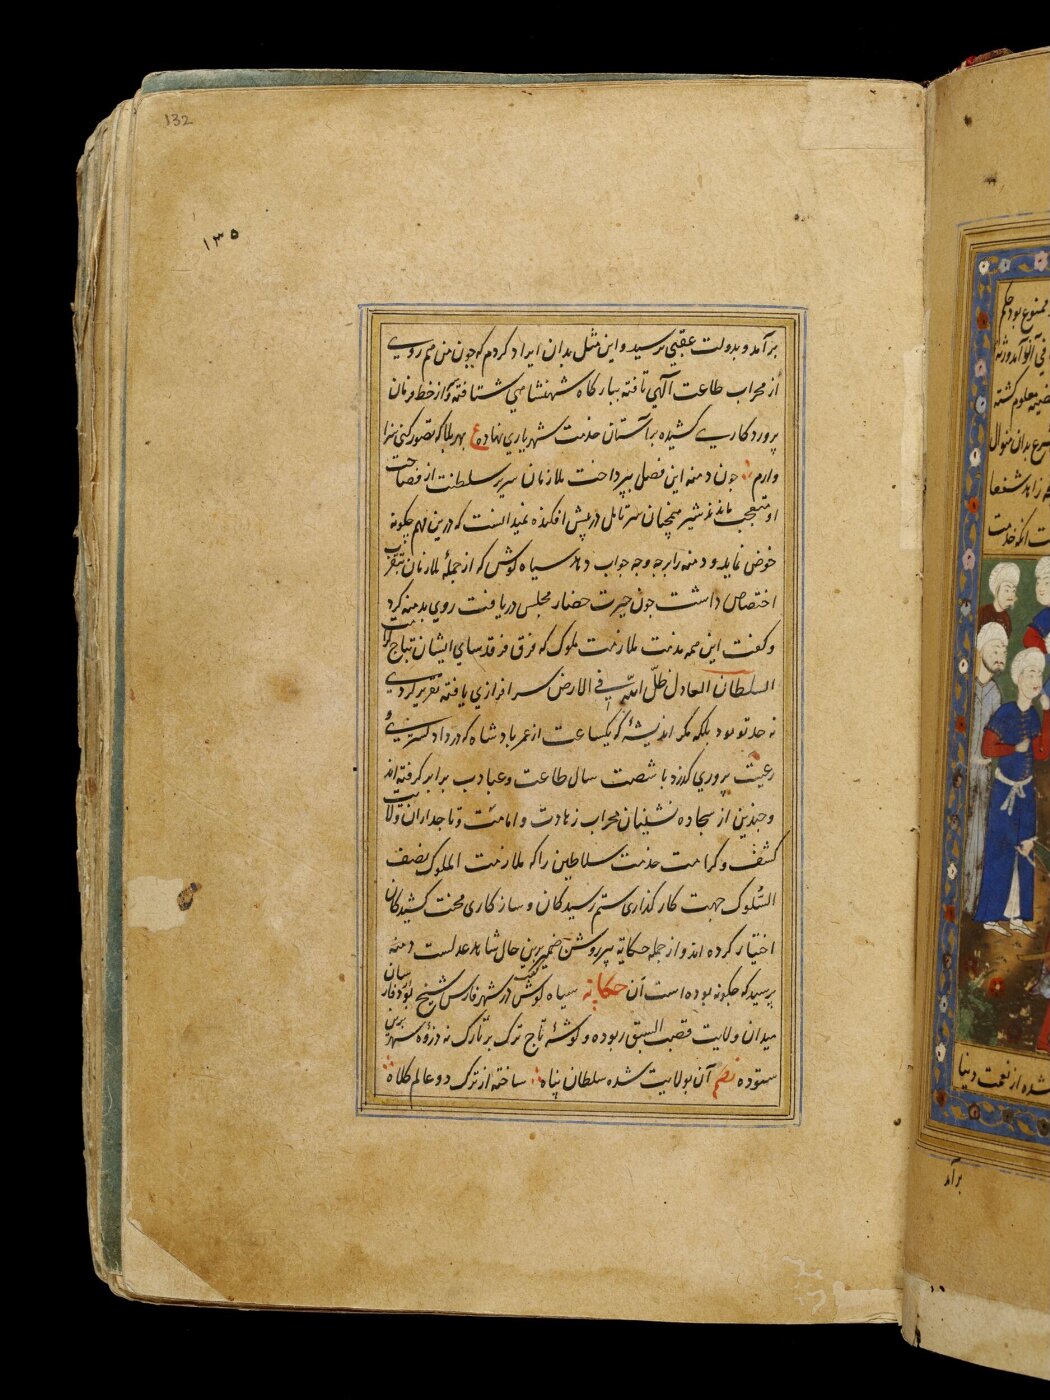 132
١٣٥
برآمد و بدولت عقبی نرسید و این مثل بدان ایراد کردم که چون من هم روی
از محراب طاعت الهی تافته ببارگاه شهنشاهی شتافته و از خط فرمان
پروردکاری کشیده بر آستان خدمت شهریاری نهاده ع بهر بلا که تصور کنی سزا
وارم جون دمنه این فصل بپرداخت ملازمان سریر سلطنت از فصاحت
او متعجب ماندند شیر همچنان سر تامل در پیش افکنده نمیدانست که درین مهم چکونه
خوض نماید و دمنه را بر چه وجه جواب دهد سیاه کوش که از جملهٔ ملازمان بتقرب
اختصاص داشت جون حیرت حضار مجلس دریافت روی بدمنه کرد
و کفت این همه مذمت ملازمت ملوک که فرق فرقد سای ایشان بتاج
السلطان العادل ظلّ الله فی الارض سرافرازی یافته تقریر کردی
نه حد تو بود بلکه مکر اندیشهٔ که یکساعت از عمر پادشاه که در داد کستری و
رعیت پروری کذرد با شصت سال طاعت و عبادت برابر کرفته اند
و چندین از سجاده نشینان محراب زهادت و امامت و تاجداران ولایت
کشف و کرامت خدمت سلاطین را که ملازمت الملوک نصف
السّلوک جهت کار کذاری ستم رسیدکان و سازکاری محنت کشیدکان
اختیار کرده اند و از جمله حکایة پیر روشن ضمیر برین حال شاهد عدلست دمنه
پرسید که چکونه بوده است آن حکایة سیاه کوش کفت در شهر فارس شیخی بود فارسان
میدان ولایت قصب السبق ربوده و کوشهٔ تاج ترک بر تارک نه ذروهٔ سپهر برین
ستوده نظم آن بولایت شده سلطان پناه ساخته از ترک دو عالم کلاه
برآمد